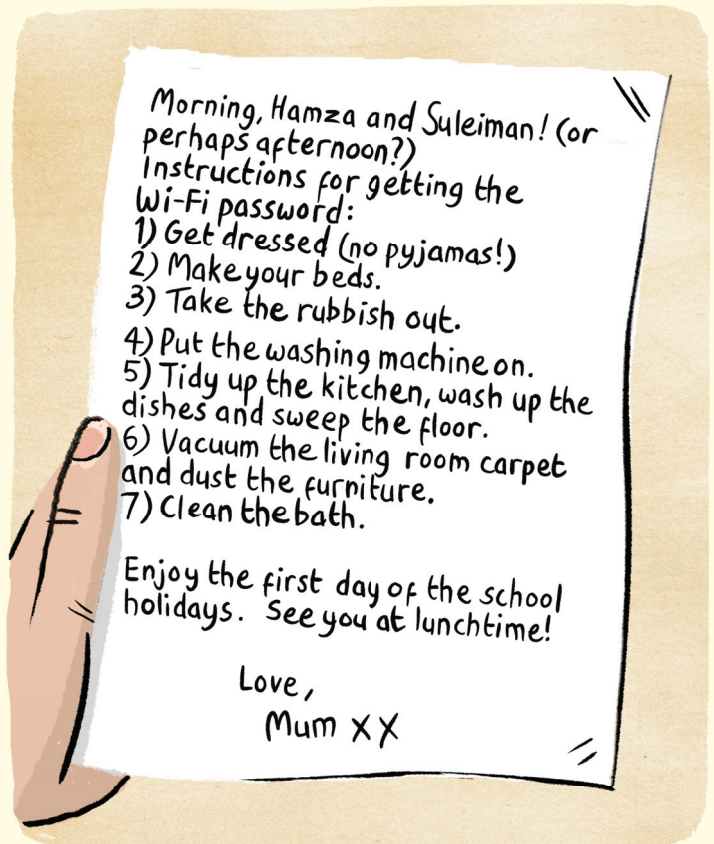 Morning, Hamza and Suleiman! (or
perhaps afternoon?)
Instructions for getting the
Wi-Fi password:
1) Get dressed (no pyjamas!)
2) Make your beds.
3) Take the rubbish out.
4) Put the washing machine on.
5) Tidy up the kitchen, wash up the
dishes and sweep the floor.
6) Vacuum the living room carpet
and dust the furniture.
7) Clean the bath.
Enjoy the first day of the school
holidays. See you at lunchtime!
Love,
Mum XX